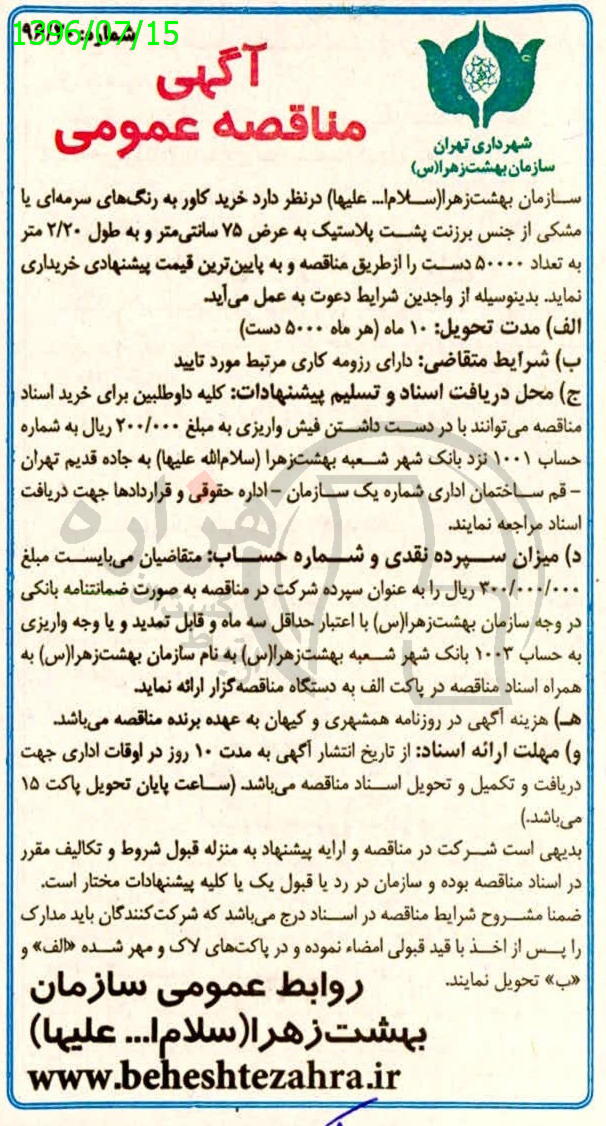 1396/07/15
شماره:
آگهی
مناقصه عمومی
شهرداری تهران
سازمان بهشت‌زهرا(س)
سازمان بهشت‌زهرا(سلام‌ا... علیها) درنظر دارد خرید کاور به رنگ‌های سرمه‌ای یا
مشکی از جنس برزنت پشت پلاستیک به عرض ۷۵ سانتی‌متر و به طول ۲/۲۰ متر
به تعداد ۵۰۰۰۰ دست را ازطریق مناقصه و به پایین‌ترین قیمت پیشنهادی خریداری
نماید. بدینوسیله از واجدین شرایط دعوت به عمل می‌آید.
الف) مدت تحویل: ۱۰ ماه (هر ماه ۵۰۰۰ دست)
ب) شرایط متقاضی: دارای رزومه کاری مرتبط مورد تایید
ج) محل دریافت اسناد و تسلیم پیشنهادات: کلیه داوطلبین برای خرید اسناد
مناقصه می‌توانند با در دست داشتن فیش واریزی به مبلغ ۲۰۰/۰۰۰ ریال به شماره
حساب ۱۰۰۱ نزد بانک شهر شعبه بهشت‌زهرا (سلام‌الله علیها) به جاده قدیم تهران
- قم ساختمان اداری شماره یک سازمان - اداره حقوقی و قراردادها جهت دریافت
اسناد مراجعه نمایند.
د) میزان سپرده نقدی و شماره حساب: متقاضیان می‌بایست مبلغ
۳۰۰/۰۰۰/۰۰۰ ریال را به عنوان سپرده شرکت در مناقصه به صورت ضمانتنامه بانکی
در وجه سازمان بهشت‌زهرا(س) با اعتبار حداقل سه ماه و قابل تمدید و یا وجه واریزی
به حساب ۱۰۰۳ بانک شهر شعبه بهشت‌زهرا(س) به نام سازمان بهشت‌زهرا(س) به
همراه اسناد مناقصه در پاکت الف به دستگاه مناقصه‌گزار ارائه نماید.
هـ) هزینه آگهی در روزنامه همشهری و کیهان به عهده برنده مناقصه می‌باشد.
و) مهلت ارائه اسناد: از تاریخ انتشار آگهی به مدت ۱۰ روز در اوقات اداری جهت
دریافت و تکمیل و تحویل اسناد مناقصه می‌باشد. (ساعت پایان تحویل پاکت ۱۵
می‌باشد.)
بدیهی است شرکت در مناقصه و ارایه پیشنهاد به منزله قبول شروط و تکالیف مقرر
در اسناد مناقصه بوده و سازمان در رد یا قبول یک یا کلیه پیشنهادات مختار است.
ضمنا مشروح شرایط مناقصه در اسناد درج می‌باشد که شرکت‌کنندگان باید مدارک
را پس از اخذ با قید قبولی امضاء نموده و در پاکت‌های لاک و مهر شده «الف» و
«ب» تحویل نمایند.
روابط عمومی سازمان
بهشت‌زهرا(سلام‌ا... علیها)
www.beheshtezahra.ir
هزاره